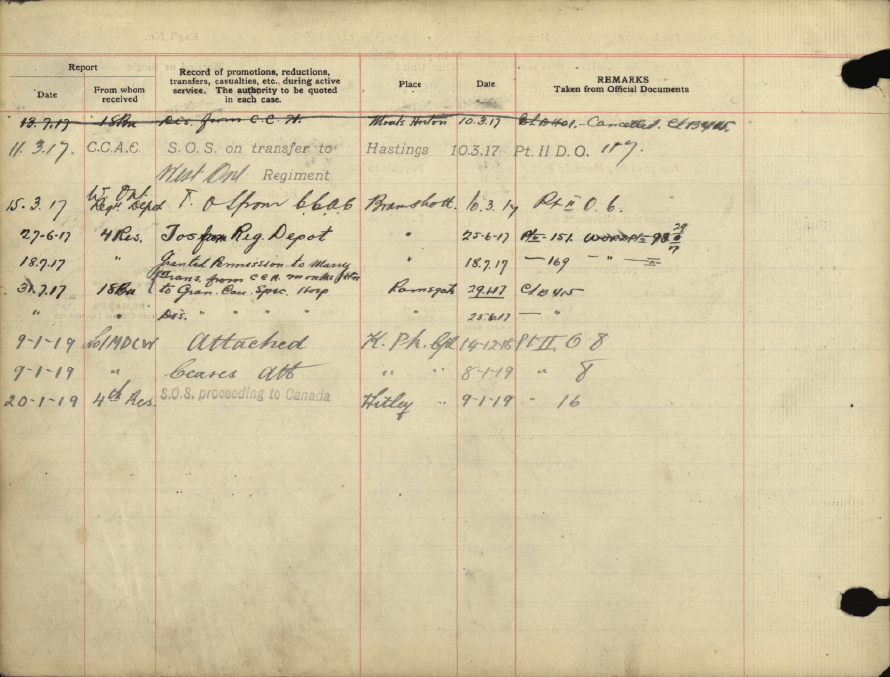 Report
Date
From whom
received
Record of promotions, reductions,
transfers, casualties, etc., during active
service. The authority to be quoted
in each case.
Place
Date
REMARKS
Taken from Official Documents
13.7.17 18Bn Dis. from C.C.H. Monks Horton 10.3.17 CLB401.- Cancelled. CLB415.
11.3.17. C.C.A.C. S.O.S. on transfer to Hastings 10.3.17 Pt. II D.O.
West Ont Regiment
15.3.17 W. Ont. Regtl Depot T.O.S from C.C.A.C Bramshott. 10.3.17 Pt II O. 6.
27-6-17 4 Res. Tos from Reg. Depot " 25-6-17 Pt II - 151.
18.7.17 " Granted Permission to Marry " 18.7.17 — 169 — " — II —
Trans. from C.C.H. Monks Horton
31.7.17 18Bn to Gran. Can. Spec. Hosp Ramsgate CLB415
" " Dis. " " " " 25.6.17 — "
9-1-19 No1MDCW Attached K. Pk. Cpl 14-12-18 Pt II O 8
9-1-19 " Ceases Att " " 8-1-19 " 8
20-1-19 4th Res. S.O.S. proceeding to Canada Witley " 9-1-19 " 16